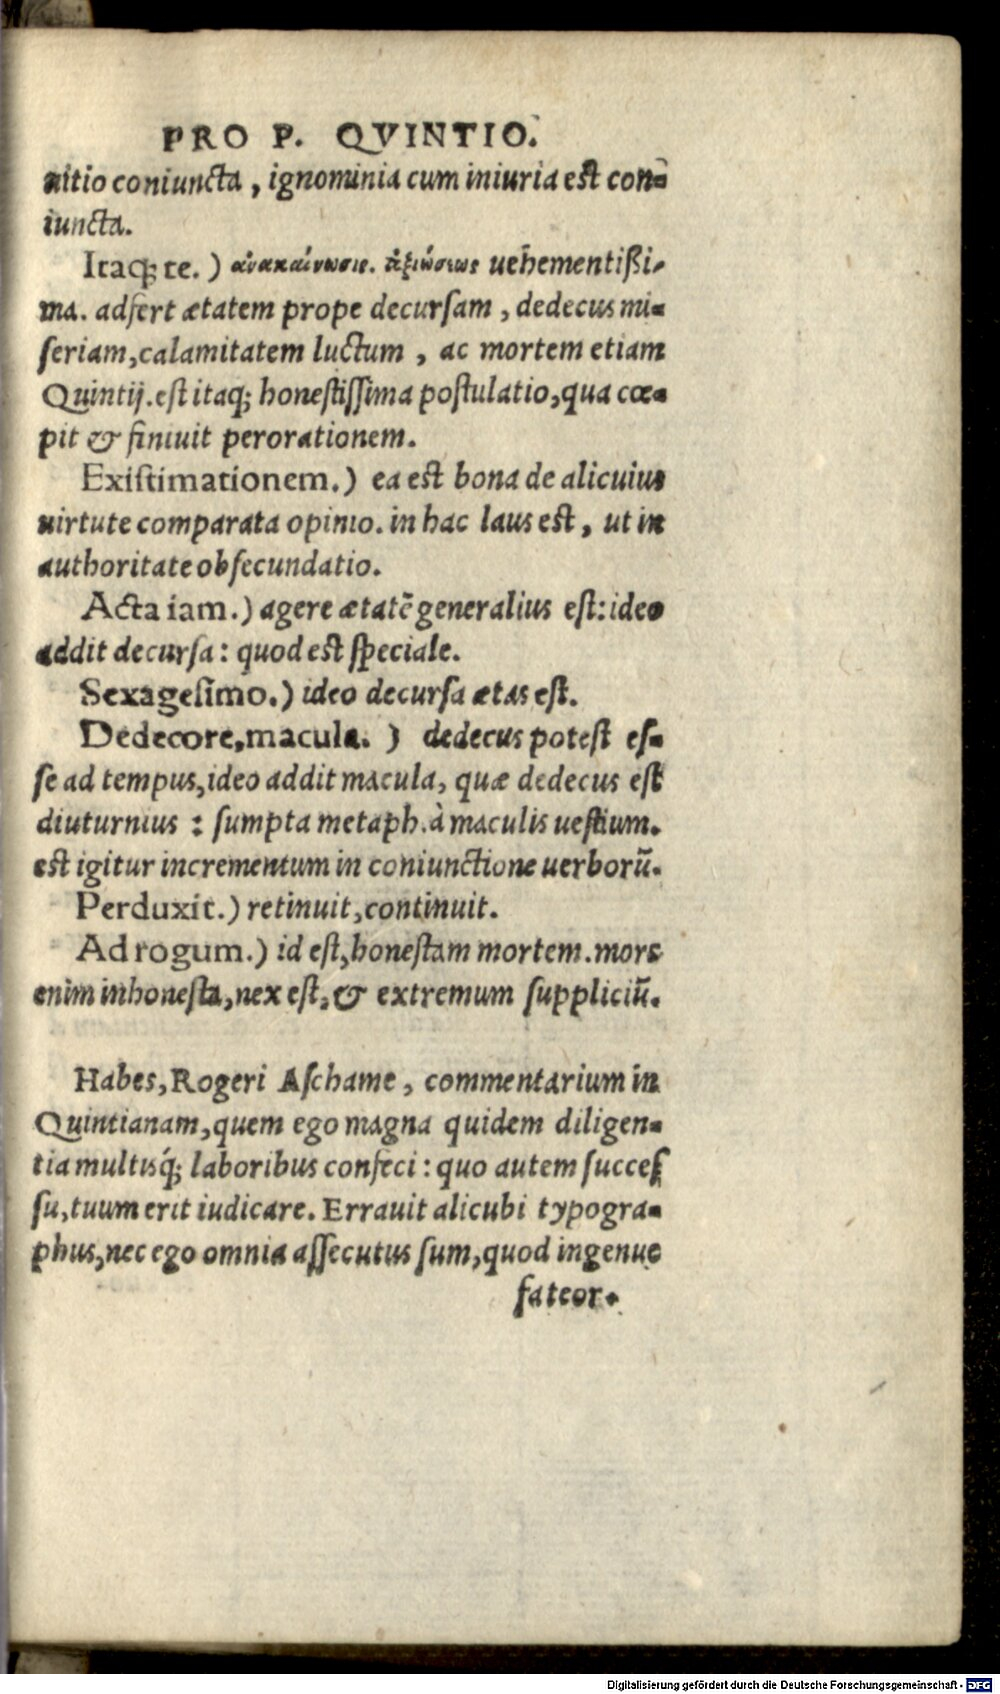 PRO P. QVINTIO.
nitio coniuncta, ignominia cum iniuria est con-
iuncta.
Itaq; te.) ἀνακαίνωσις. ἀξιώσεως uehementißi-
ma. adfert ætatem prope decursam, dedecus mi-
seriam, calamitatem luctum, ac mortem etiam
Quintij. est itaq; honestissima postulatio, qua cœ-
pit & finiuit perorationem.
Existimationem.) ea est bona de alicuius
uirtute comparata opinio. in hac laus est, ut in
authoritate obsecundatio.
Acta iam.) agere ætatē generalius est: ideo
addit decursa: quod est speciale.
Sexagesimo.) ideo decursa ætas est.
Dedecore, macula.) dedecus potest es-
se ad tempus, ideo addit macula, quæ dedecus est
diuturnius: sumpta metaph. à maculis uestium.
est igitur incrementum in coniunctione uerborū.
Perduxit.) retinuit, continuit.
Ad rogum.) id est, honestam mortem. mors
enim inhonesta, nex est, & extremum suppliciū.
Habes, Rogeri Aschame, commentarium in
Quintianam, quem ego magna quidem diligen-
tia multisq́; laboribus confeci: quo autem succes
su, tuum erit iudicare. Errauit alicubi typogra-
phus, nec ego omnia assecutus sum, quod ingenue
fateor.
Digitalisierung gefördert durch die Deutsche Forschungsgemeinschaft - DFG